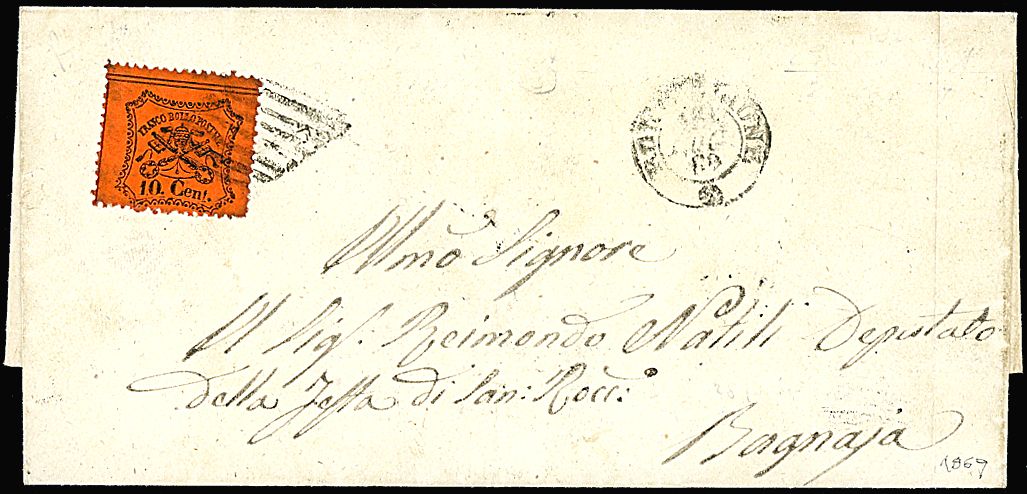 FRANCO BOLLO POSTALE
10. Cent.
Illmo Signore
Al Sig. Reimondo Natili Deputato
della Festa di San: Rocco:
Bagnaja
1869